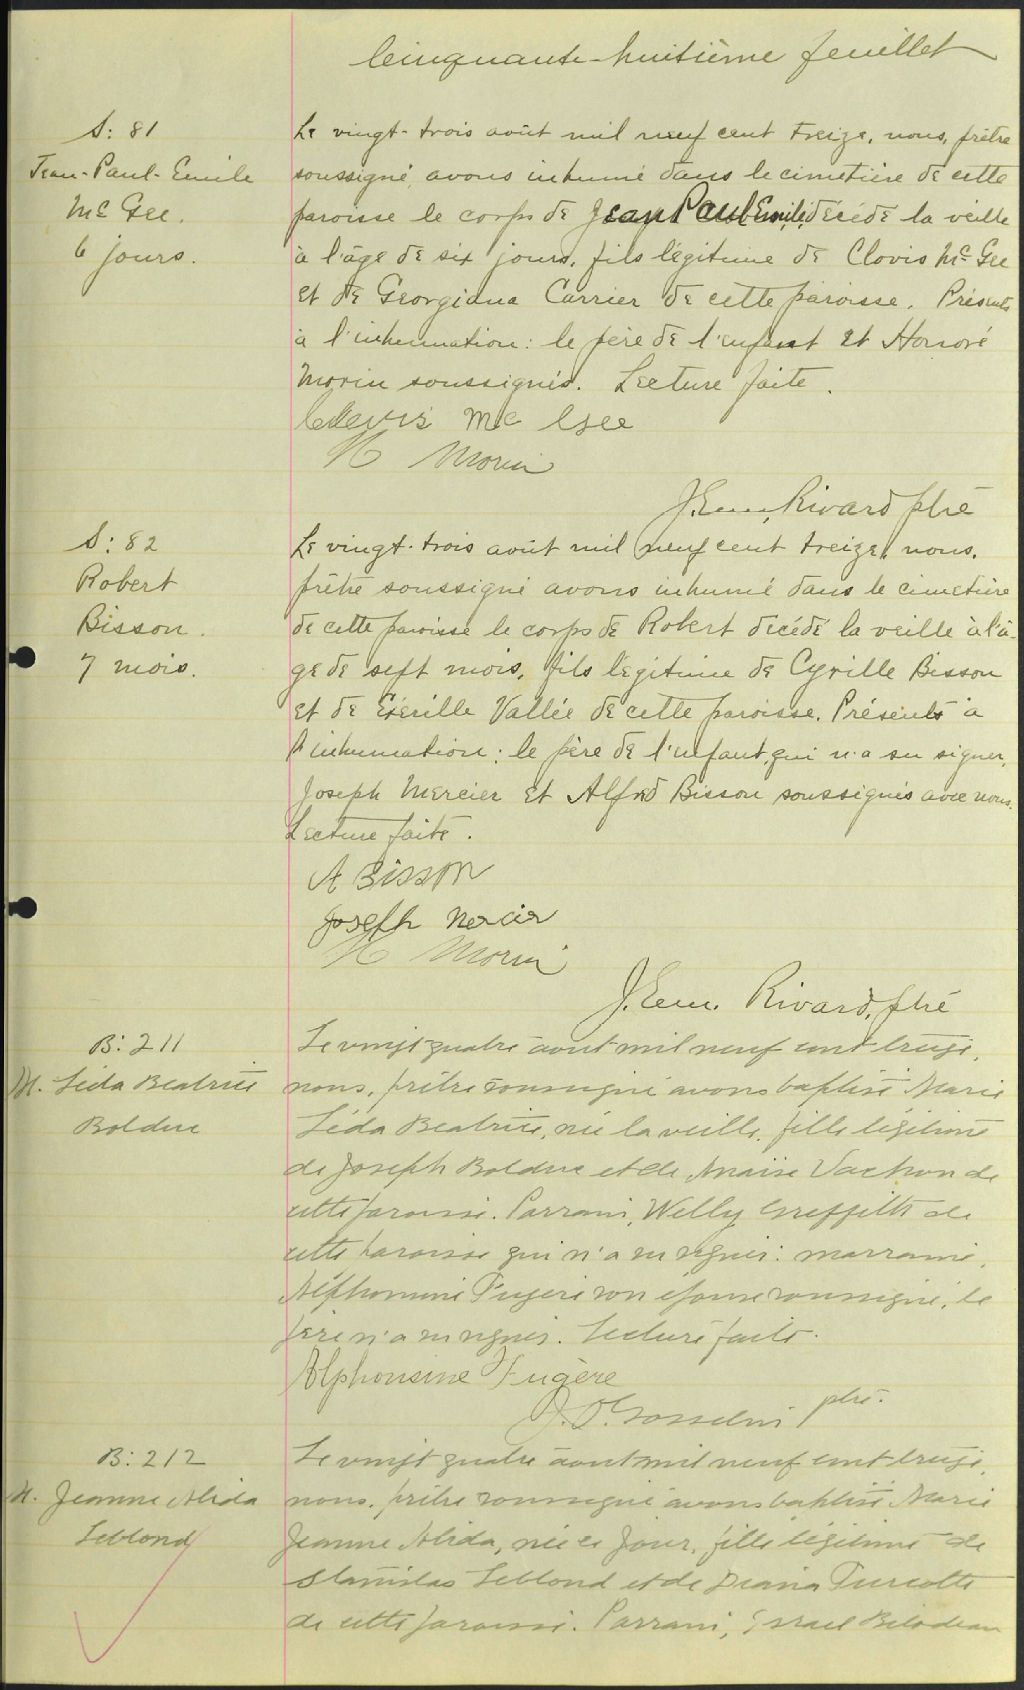 Cinquante-huitième feuillet
S: 81
Jean-Paul-Emile
Mc Gee.
6 jours.
Le vingt-trois août mil neuf cent treize, nous, prêtre
soussigné, avons inhumé dans le cimetière de cette
paroisse le corps de Jean Paul Emile, décédé la veille
à l'âge de six jours, fils légitime de Clovis Mc Gee
et de Georgiana Carrier de cette paroisse. Présents
à l'inhumation: le père de l'enfant et Honoré
Morin soussignés. Lecture faite.
Mc Gee
H Morin
J. Em. Rivard ptre
S: 82
Robert
Bisson.
7 mois.
Le vingt-trois août mil neuf cent treize, nous,
prêtre soussigné avons inhumé dans le cimetière
de cette paroisse le corps de Robert décédé la veille à l'â-
ge de sept mois, fils légitime de Cyrille Bisson
et de Vallée de cette paroisse. Présents à
l'inhumation: le père de l'enfant, qui n'a su signer,
Joseph Mercier et Alfred Bisson soussignés avec nous.
Lecture faite.
A Bisson
Joseph Mercier
H Morin
J. Em. Rivard, ptre
B: 211
M. Léda Beatrice
Bolduc
Le vingt quatre aout mil neuf cent treize,
nous, prêtre soussigné avons baptisé Marie
Léda Beatrice, née la veille, fille légitime
de Joseph Bolduc et de Anaïse Vachon de
cette paroisse. Parrain, Willy Greffitts de
cette paroisse qui n'a su signer: marraine,
Alphonsine Fugère son épouse soussigné, le
père n'a su signer. Lecture faite.
Alphonsine Fugère
J. O. Gosselin ptre.
B: 212
M. Jeanne Alida
Leblond
Le vingt quatre aout mil neuf cent treize,
nous, prêtre soussigné avons baptisé Marie
Jeanne Alida, née ce jour, fille légitime de
Stanislas Leblond et de Diana Turcotte
de cette paroisse. Parrain, Israel Bilodeau